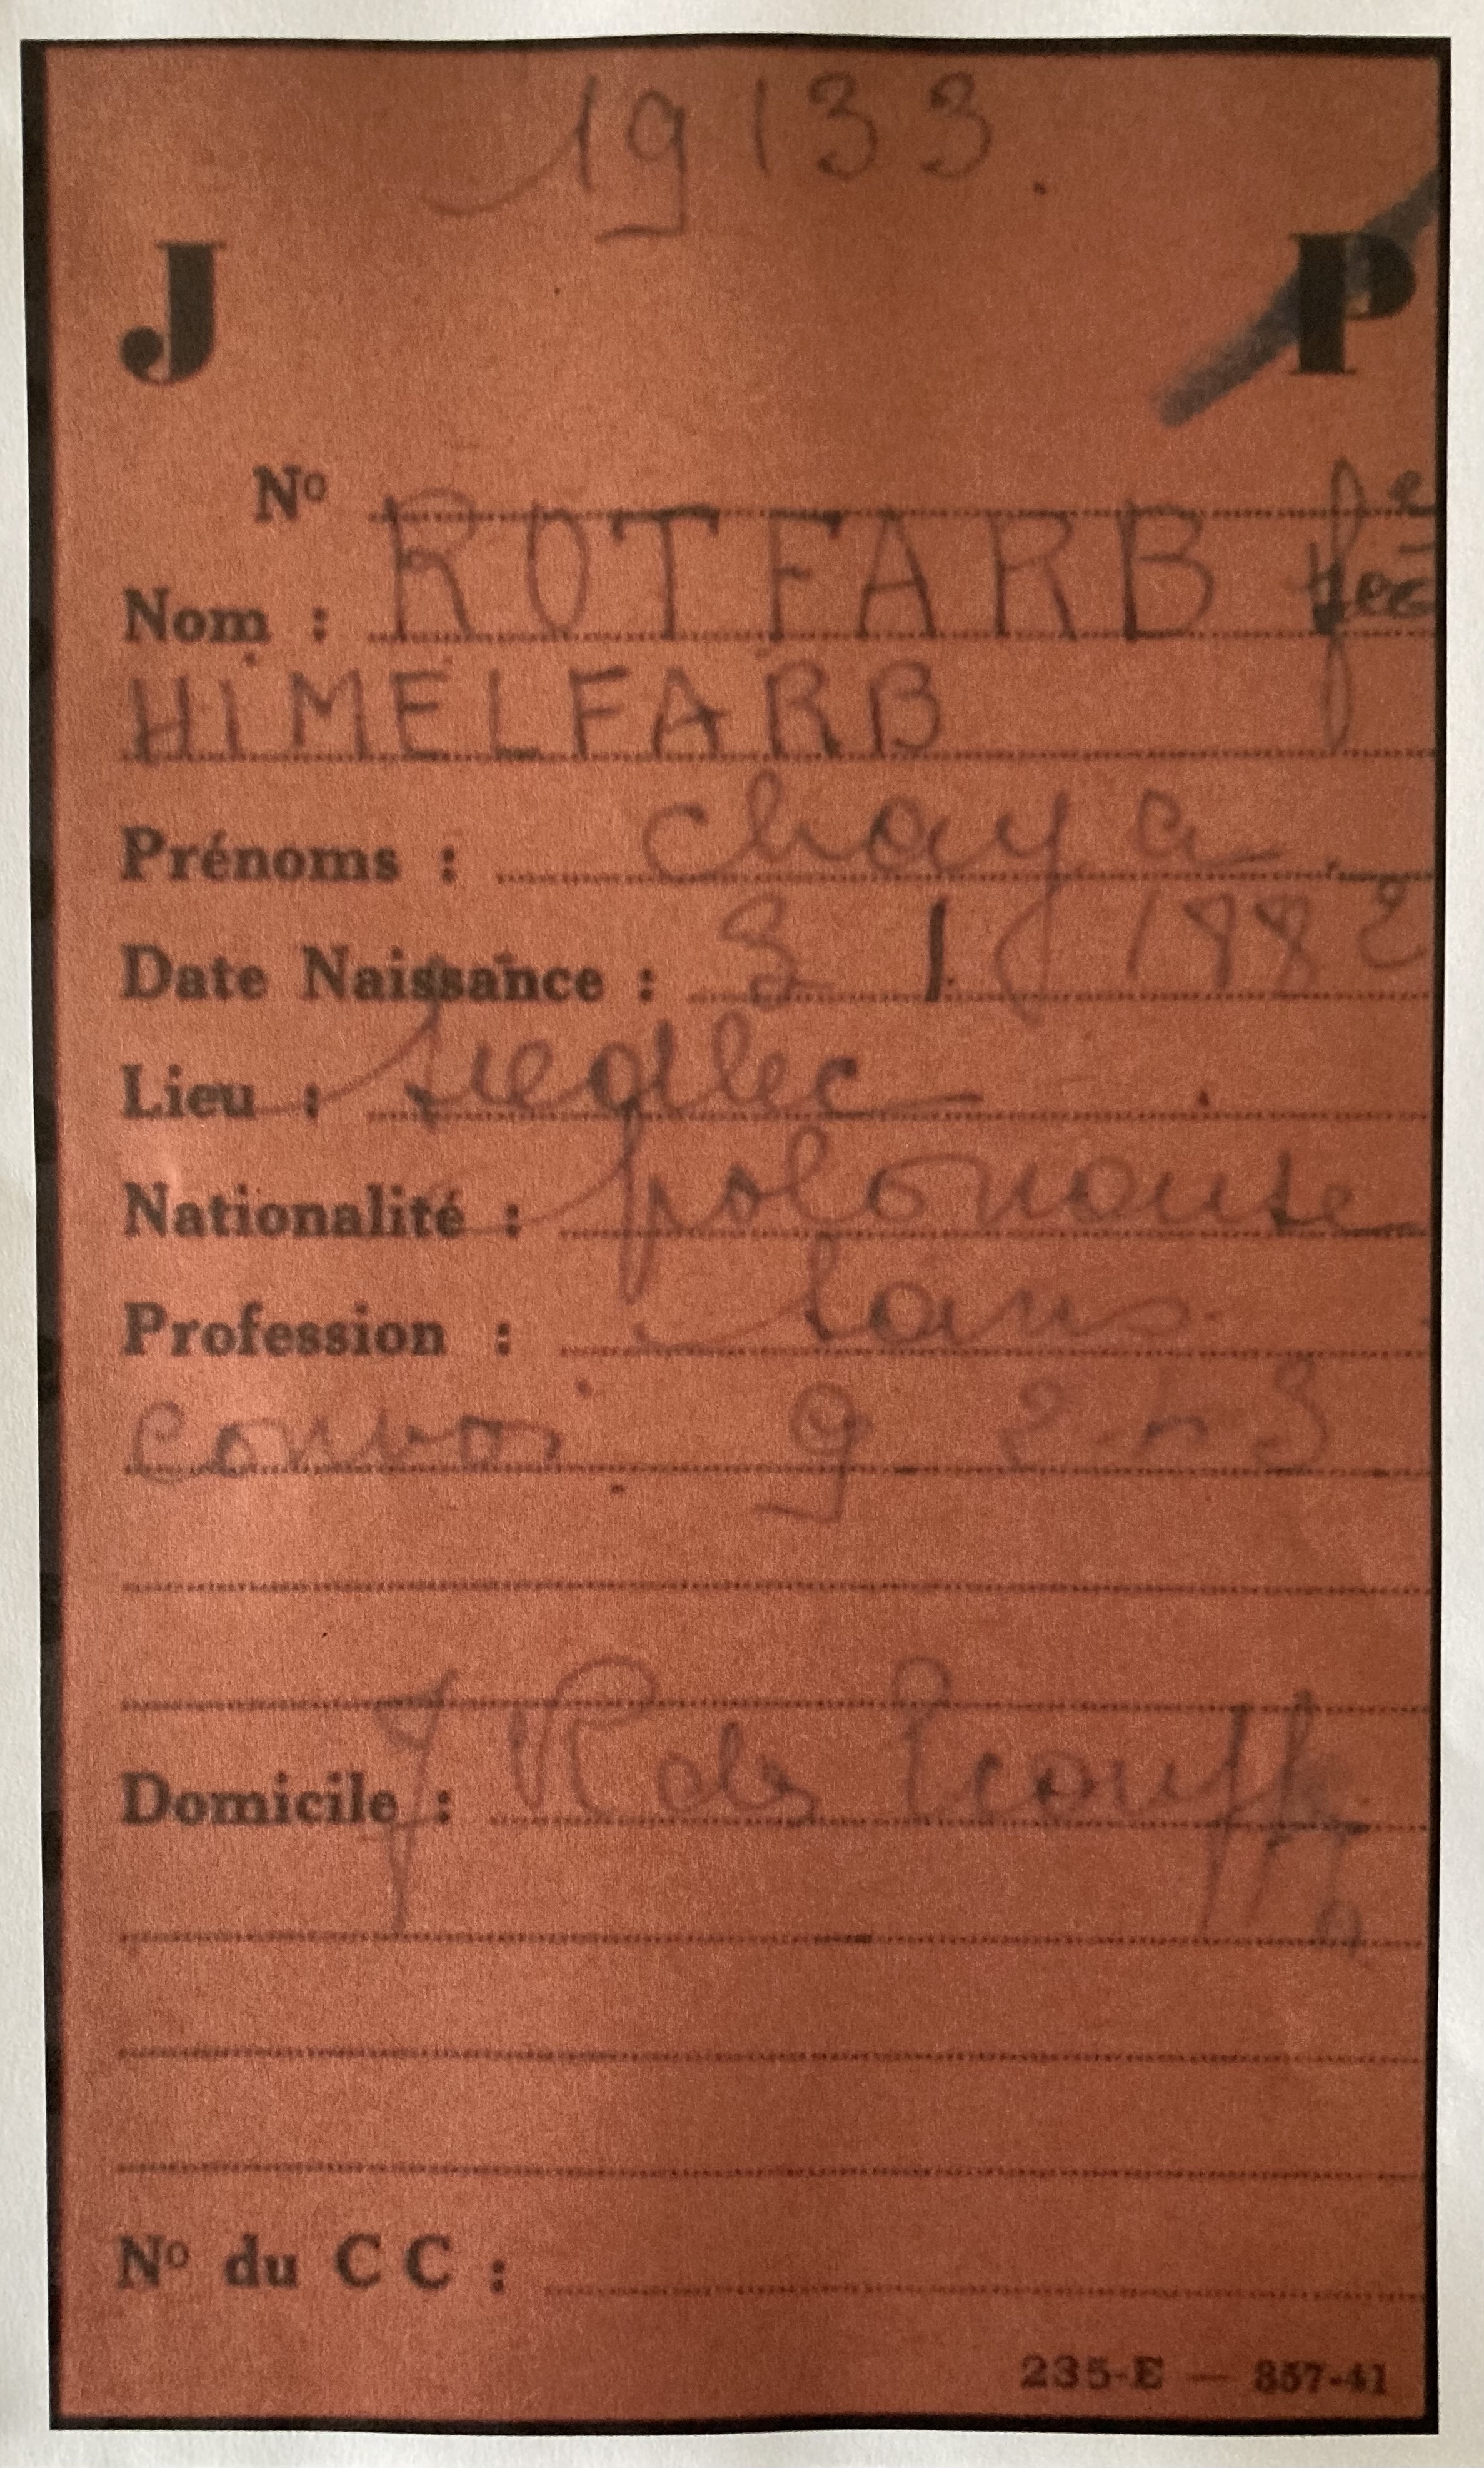 19133.
J P
No
Nom : ROTFARB fe née
HIMELFARB
Prénoms : Chaya
Date Naissance : 3 1 / 1882
Lieu : Siedlec
Nationalité : polonaise
Profession : sans
convoi 9 2-3
Domicile : 7 R des Ecouffes
No du C C :
235-E — 357-41